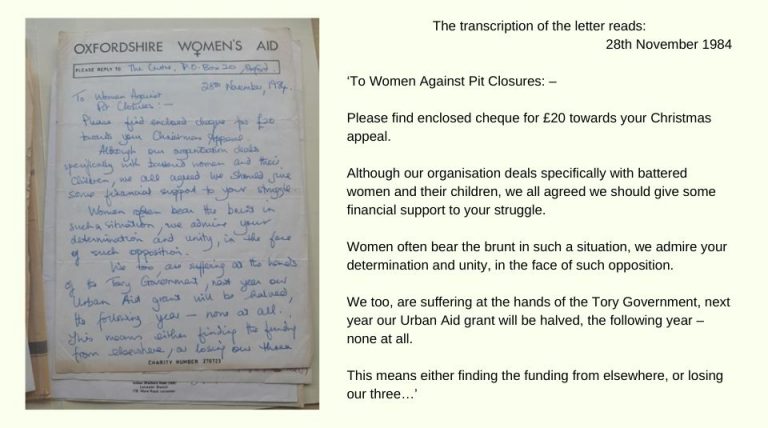 OXFORDSHIRE WOMEN'S AID
PLEASE REPLY TO The Centre, P.O. Box 20, Oxford.
28th November, 1984.
To Women Against
Pit Closures :—
Please find enclosed cheque for £20
towards your Christmas Appeal.
Although our organisation deals
specifically with battered women and their
Children, we all agreed we should give
some financial support to your struggle
Women often bear the brunt in
such a situation, we admire your
determination and unity, in the face
of such opposition.
We too, are suffering at the hands
of the Tory Government, next year our
Urban Aid grant will be halved,
the following year — none at all.
This means either finding the funding
from elsewhere, or losing our three
CHARITY NUMBER 270723
Leicester Branch
The transcription of the letter reads:
28th November 1984
‘To Women Against Pit Closures: –
Please find enclosed cheque for £20 towards your Christmas
appeal.
Although our organisation deals specifically with battered
women and their children, we all agreed we should give some
financial support to your struggle.
Women often bear the brunt in such a situation, we admire your
determination and unity, in the face of such opposition.
We too, are suffering at the hands of the Tory Government, next
year our Urban Aid grant will be halved, the following year –
none at all.
This means either finding the funding from elsewhere, or losing
our three…’